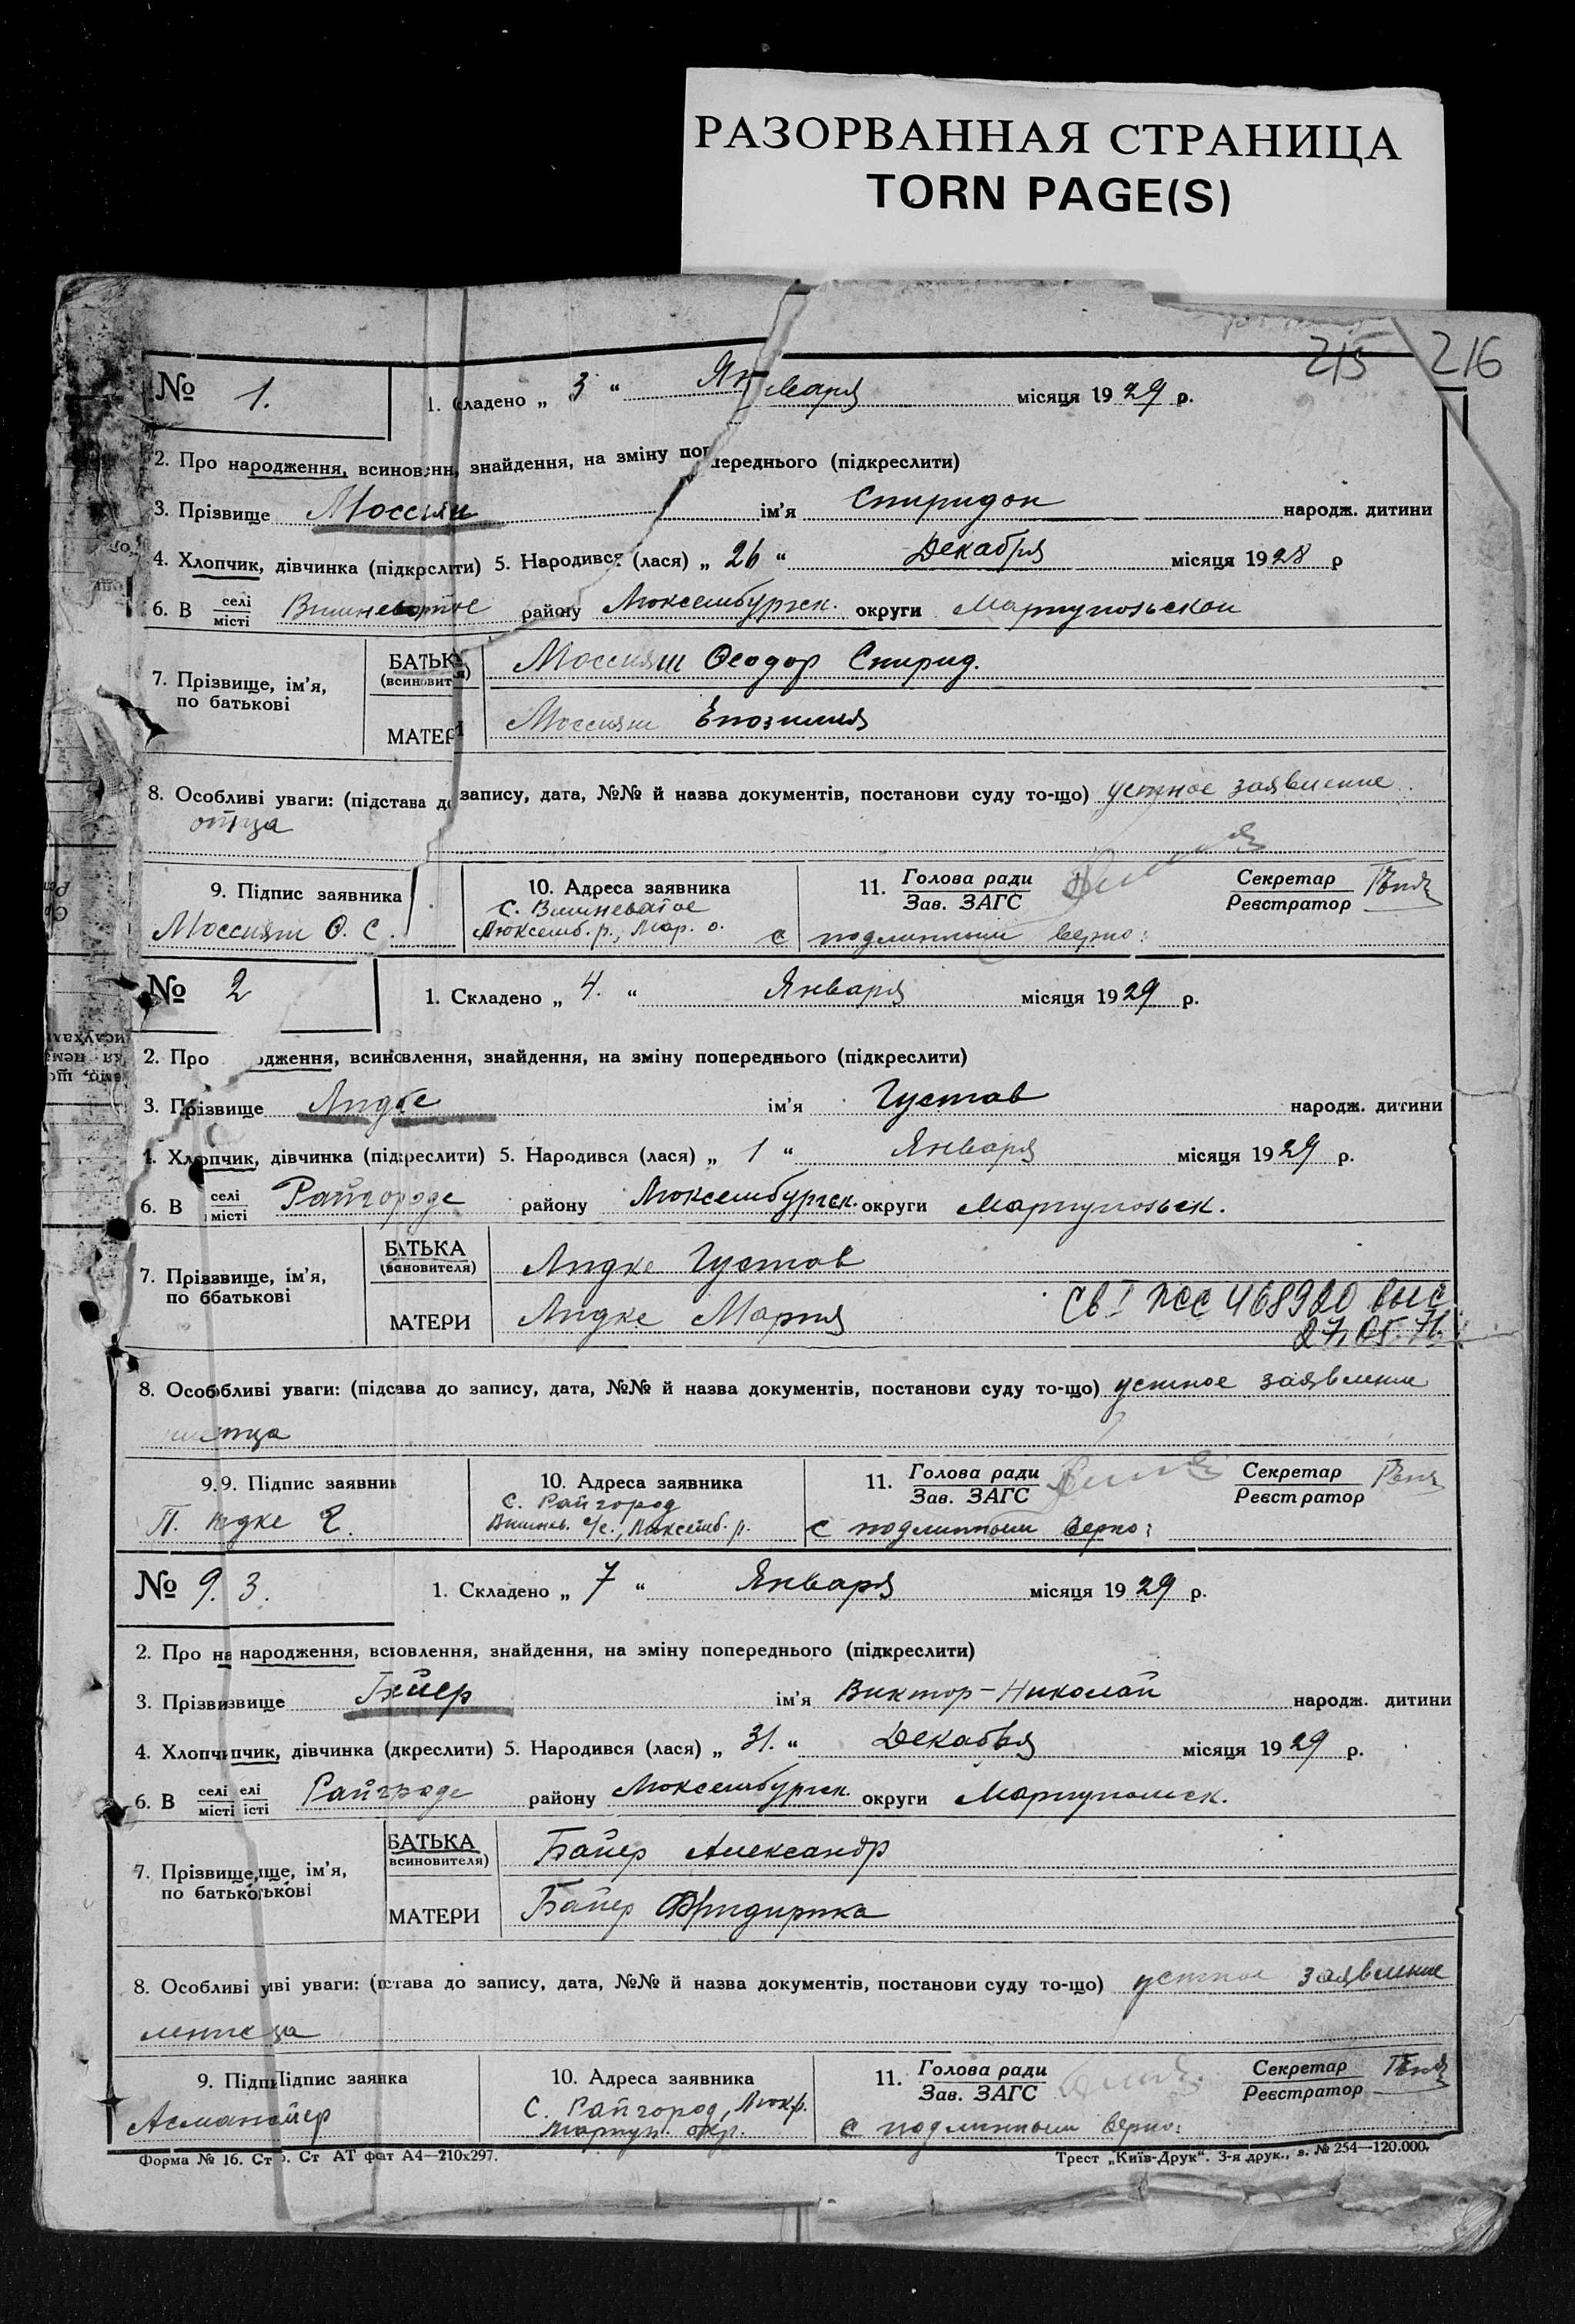 РАЗОРВАННАЯ СТРАНИЦА
TORN PAGE(S)
215 216
№ 1. 1. Складено „ 3 “ Января місяця 1929 р.
2. Про народження, всиновленн, знайдення, на зміну попереднього (підкреслити)
3. Прізвище ім’я Спиридон народж. дитини
4. Хлопчик, дівчинка (підкреслити) 5. Народився (лася) „ 26 “ Декабря місяця 1928 р
6. В селі місті Вишневатое району Люксембургск. округи Мариупольской
7. Прізвище, ім’я, по батькові
БАТЬКА (всиновителя) Моссияш Феодор Спирид.
МАТЕРИ Моссияш
8. Особливі уваги: (підстава до запису, дата, №№ й назва документів, постанови суду то-що) устное заявление
отца
9. Підпис заявника 10. Адреса заявника 11. Голова ради Зав. ЗАГС Секретар Реєстратор
Моссияш Ф. С. С. Вишневатое
Люксемб. р., Мар. о. с подлинным верно:
№ 2 1. Складено „ 4. “ Января місяця 1929 р.
2. Про одження, всиновлення, знайдення, на зміну попереднього (підкреслити)
3. Прізвище ім’я Густав народж. дитини
4. Хлопчик, дівчинка (підкреслити) 5. Народився (лася) „ 1 “ Января місяця 1929 р.
6. В селі місті Райгороде району Люксембургск. округи Мариупольск.
7. Пріззвище, ім’я, по ббатькові
БАТЬКА (всиновителя) Лидке Густав
МАТЕРИ Лидке Мария
Св I ПСС 468920 выс.
27.05.71.
8. Особбливі уваги: (підсава до запису, дата, №№ й назва документів, постанови суду то-що) устное заявление
отца
9.9. Підпис заявник 10. Адреса заявника 11. Голова ради Зав. ЗАГС Секретар Реєстратор
С. Райгород
Вишнев. с/с., Люксемб. р. с подлинным верно:
№ 9. 3. 1. Складено „ 7 “ Января місяця 1929 р.
2. Про на народження, всіовлення, знайдення, на зміну попереднього (підкреслити)
3. Прізвизвище Байер ім’я Виктор-Николай народж. дитини
4. Хлопчипчик, дівчинка (дкреслити) 5. Народився (лася) „ 31. “ Декабря місяця 1929 р.
6. В селі елі місті істі Райгороде району Люксембургск. округи Мариупольск.
7. Прізвище,ище, ім’я, по батькотькові
БАТЬКА всиновителя) Байер Александр
МАТЕРИ Байер Фридирика
8. Особливі уиві уваги: (пстава до запису, дата, №№ й назва документів, постанови суду то-що) устное заявление
9. ПідпиПідпис заявнка 10. Адреса заявника 11. Голова ради Зав. ЗАГС Секретар Реєстратор
С. Райгород, Люкр.
Мариуп. окр. с подлинным верно:
Форма № 16. Ст Ст АТ фат А4—210x297. Трест „Київ-Друк“. 3-я друк., з. № 254—120.000.